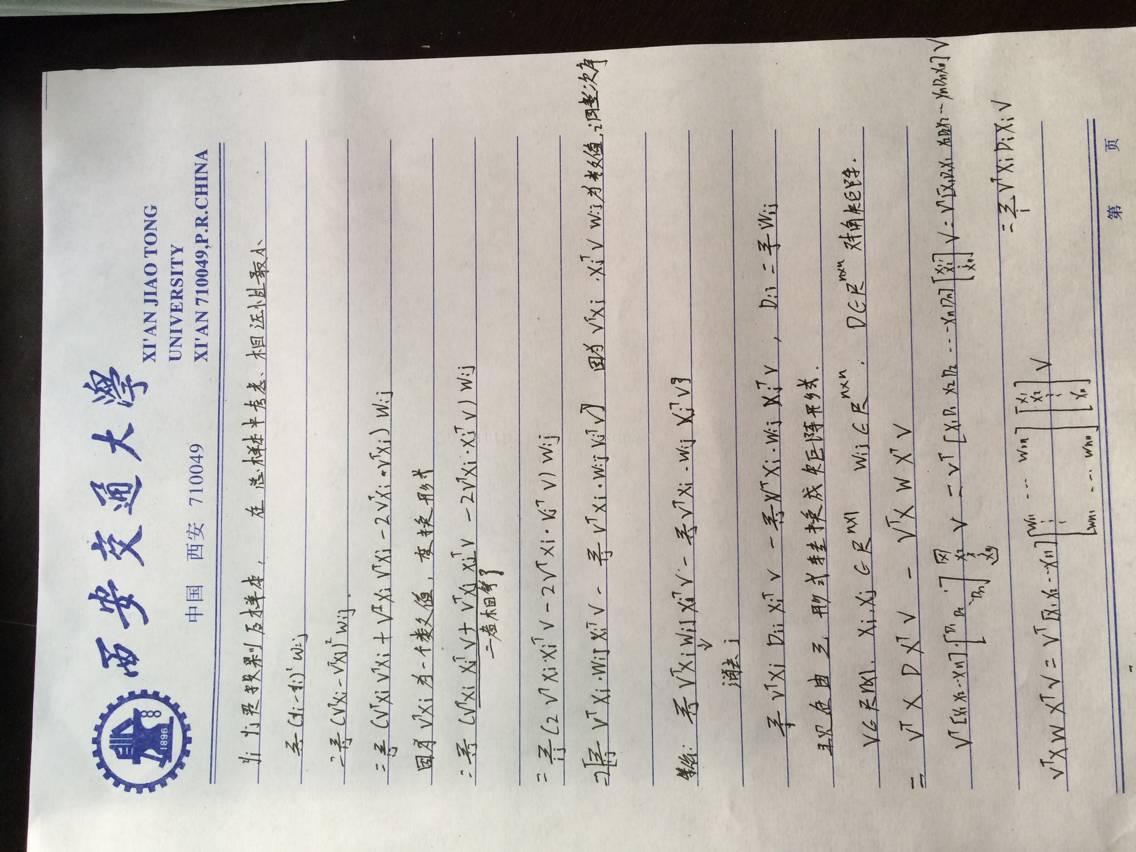 西安交通大學
1896
XI'AN JIAO TONG
UNIVERSITY
中国 西安 710049
XI'AN 710049,P.R.CHINA
yi yj是投影后样本, 在总样本中考虑、相近性最小
Σij (yi-yj)² Wij
=Σij (VᵀXi-VᵀXj)² Wij.
=Σij (VᵀXi VᵀXi + VᵀXj VᵀXj - 2VᵀXi·VᵀXj) Wij
因为 VᵀXi 为一个数值, 变换形式
=Σij (VᵀXi XiᵀV + VᵀXj XjᵀV - 2VᵀXi·XjᵀV) Wij
二者相等
=Σij (2 VᵀXi·XiᵀV - 2VᵀXi·XjᵀV) Wij
=2[Σij VᵀXi·Wij XiᵀV - Σij VᵀXi·Wij XjᵀV] 因为 VᵀXi ·XjᵀV Wij为数值,调整次序
Σij VᵀXi Wij XiᵀV - Σij VᵀXi·Wij XjᵀV
消去 j
Σi VᵀXi Dii XiᵀV - Σij VᵀXi·Wij XjᵀV, Dii = Σj Wij
现在由 Σ 形式转换成矩阵形式.
V∈Rn×1, Xi,Xj ∈ Rⁿˣ¹ Wij∈Rⁿˣⁿ, D∈Rⁿˣⁿ 对角矩阵.
= Vᵀ X D Xᵀ V - VᵀX W Xᵀ V
Vᵀ[X1 X2 --- Xn]·[D1 D2 ⋱ Dn] [X1 X2 ⋮ Xn] V = Vᵀ [X1D1 X2D2 ---- XnDn] [X1 X2 ⋮ Xn] V = Vᵀ[X1D1X1 X2D2X2 --- XnDnXn] V
= Σi VᵀXi Di Xi V
VᵀX W XᵀV = Vᵀ [X1 X2 --- Xn] [W11 --- W1n ⋮ Wn1 ---- Wnn] [X1 X2 ⋮ Xn] V
第 页